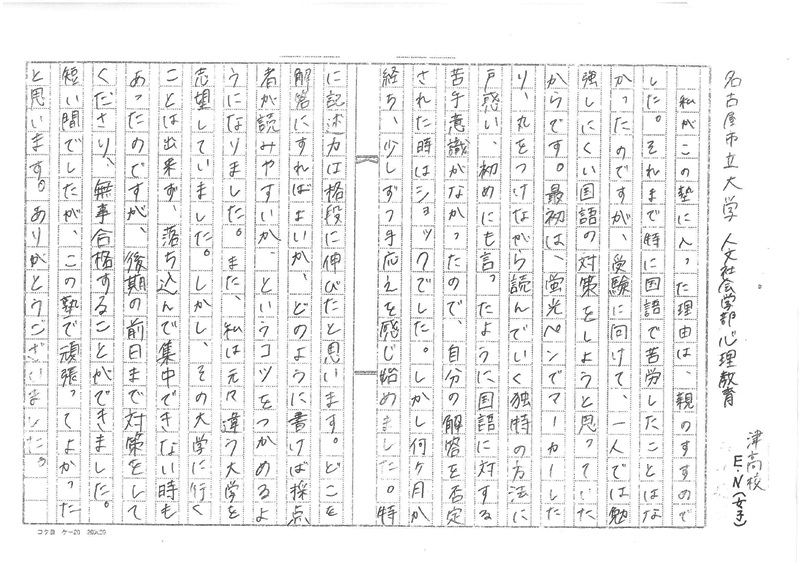 名古屋市立大学 人文社会学部 心理教育
津高校
E.N(女子)
私がこの塾に入った理由は、親のすすめで
した。それまで特に国語で苦労したことはな
かったのですが、受験に向けて、一人では勉
強しにくい国語の対策をしようと思っていた
からです。最初は、蛍光ペンでマーカーした
り、丸をつけながら読んでいく独特の方法に
戸惑い、初めにも言ったように国語に対する
苦手意識がなかったので、自分の解答を否定
された時はショックでした。しかし何ヶ月か
経ち、少しずつ手応えを感じ始めました。特
に記述力は格段に伸びたと思います。どこを
解答にすればよいか、どのように書けば採点
者が読みやすいか、というコツをつかめるよ
うになりました。また、私は元々違う大学を
志望していました。しかし、その大学に行く
ことは出来ず、落ち込んで集中できない時も
あったのですが、後期の前日まで対策をして
くださり、無事合格することができました。
短い間でしたが、この塾で頑張ってよかった
と思います。ありがとうございました。
コクヨ ケ-20 20×20